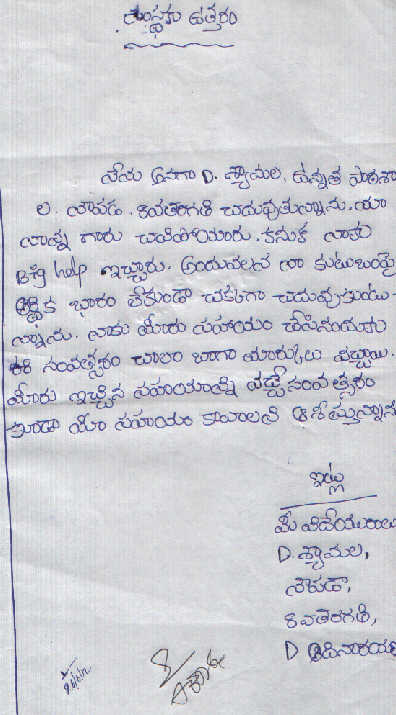 సంస్థకు ఉత్తరం
నేను అనగా D. శ్యామల, ఉన్నత పాఠశా
ల. సావడ. 8వతరగతి చదువుతున్నాను. మా
నాన్న గారు చనిపోయారు. కనుక నాకు
Big help ఇచ్చారు. అందువలన నా కుటుంబంపై
ఆర్థిక భారం లేకుండా చక్కగా చదువుకుంటు-
న్నాను. నాకు మీరు సహాయం చేసినందుకు
ఈ సంవత్సరం చాలా బాగా మార్కులు వచ్చాయి.
మీరు ఇచ్చిన సహాయాన్ని వచ్చే సంవత్సరం
కూడా మీ సహాయం కావాలని ఆశిస్తున్నాను
ఇట్లు
మీ విదేయురాలు
D శ్యామల,
8వతరగతి,
D ఆదినారాయణ